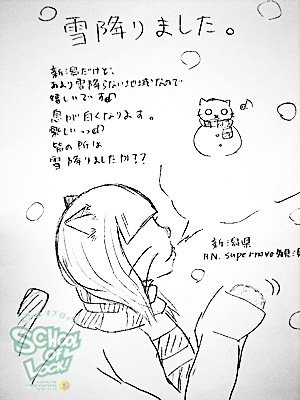 雪降りました。
新潟だけど、
あまり雪降らない地域なので
嬉しいです♪
息が白くなります。
楽しいっ♪
皆の所は
雪降りましたか??
新潟県
RN. supernova
SCHOOL
OF
LOCK!